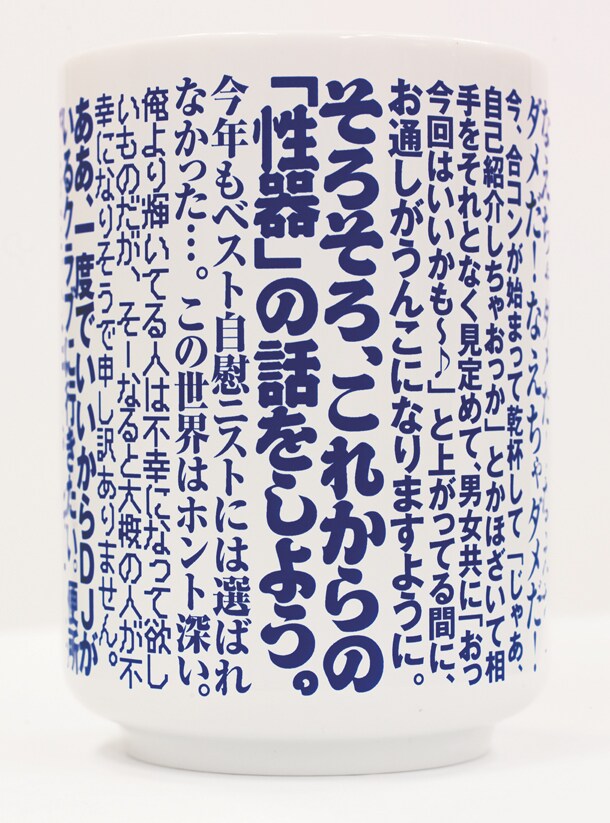 ダメだ!なえちゃダメだ!
今、合コンが始まって乾杯して「じゃあ、
自己紹介しちゃおっか」とかほざいて相
手をそれとなく見定めて、男女共に「おっ
今回はいいかも〜♪」と上がってる間に、
お通しがうんこになりますように。
そろそろ、これからの
「性器」の話をしよう。
今年もベスト自慰ニストには選ばれ
なかった…。この世界はホント深い。
俺より輝いてる人は不幸になって欲し
いものだが、そーなると大概の人が不
幸になりそうで申し訳ありません。
ああ、一度でいいからDJが
いるクラブに行きたい。便所